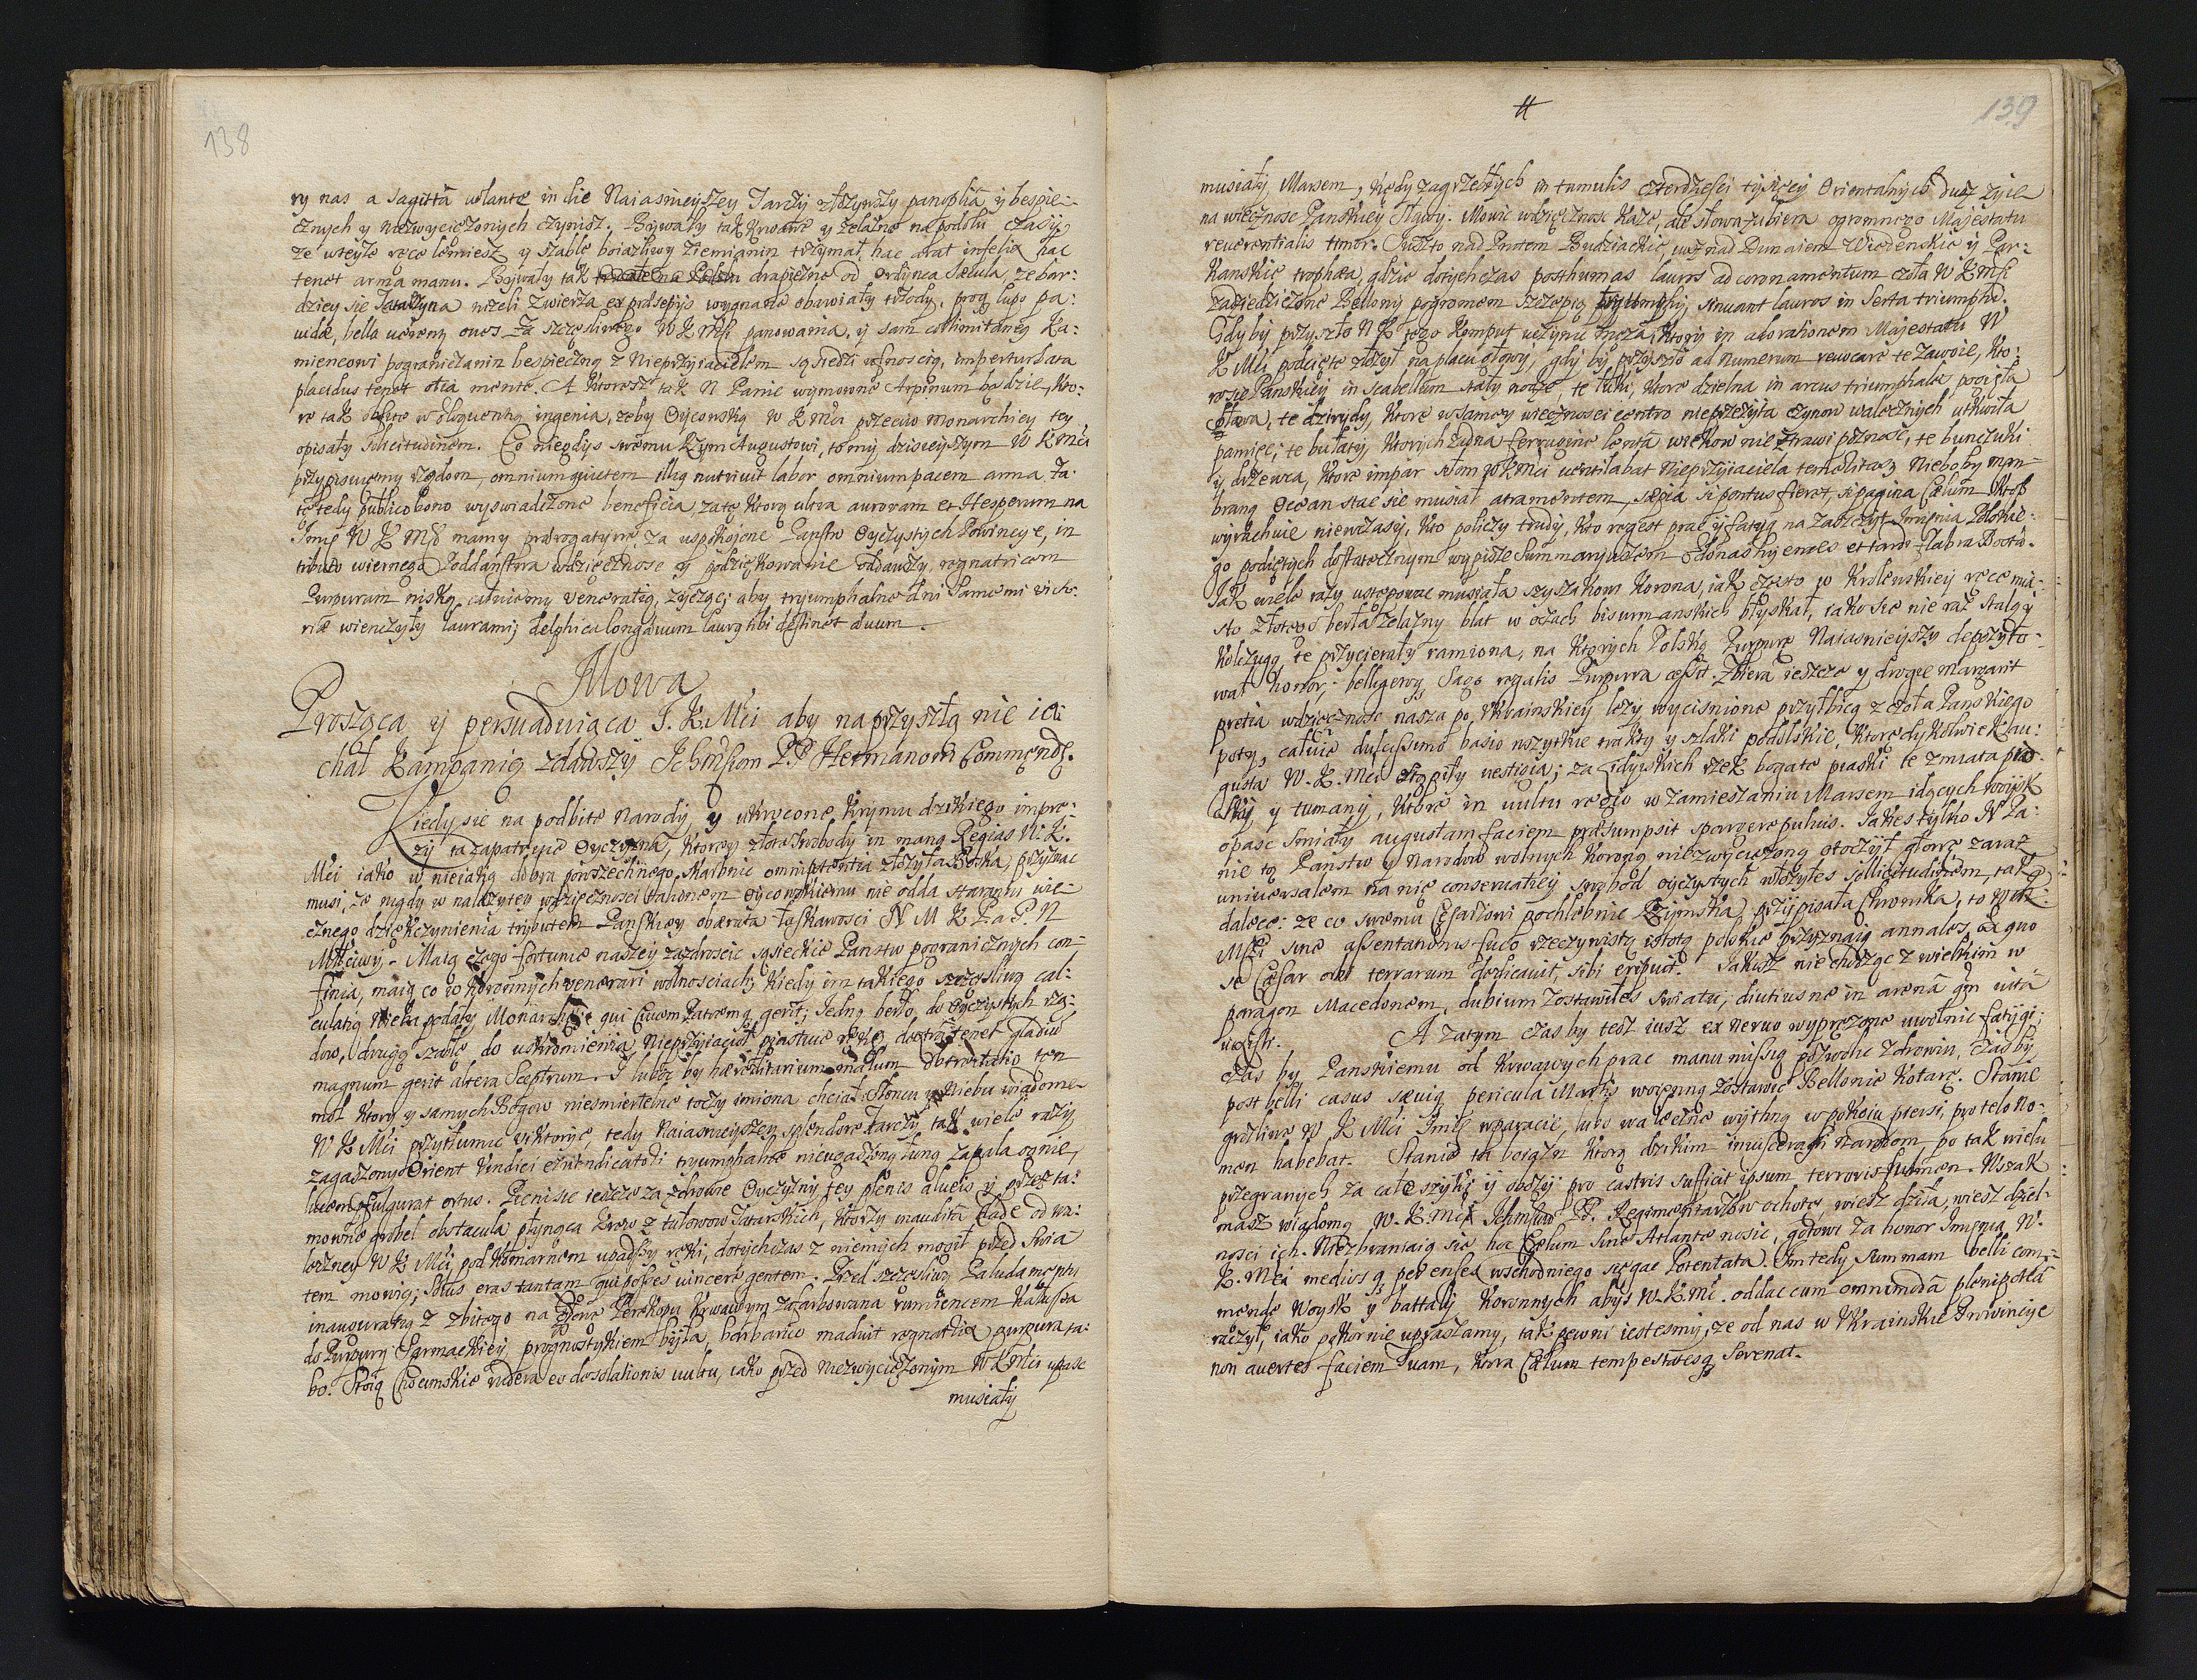 138
ry nas a sagittâ volante in die Naiasnieyszey Tarczy złożywszy panopliâ y bespie-
cznych y niezwyciężonych czynisz. Bywały tak krwawe y żelazne na podolu czasy,
że wteyże ręce lemiesz y szable boiazliwy ziemianin trzymał, hac arat infelix hac
tenet arma manu. Bywały tak drapieżne od ordynca sæcula, ze bar:
dziey się Tatarzyna niżeli zwierza ex præsepijs wygnane obawiały trzody, proq lupo pa:
uidæ, bella uerentur oues. Za szczęśliwego W K Mći panowania, y sam collimitaney Ka:
mieńcowi pograniczanin bespieczną z Nieprzyiacielem sąsiedzi ufnoscią, imperturbata
placidus tenet otia mente. A ktoresz tak N Panie wymowne Arpinum będzie, kto-
re tak obfite w eloquentią ingenia, żeby Oycowską W K Mći przeciw Monarchiey tey
opisały Sollicitudinem. Co niegdys swemu Rzym Augustowi, to my dzisieyszym W K Mći
przypisuiemy rządom, omnium quietem illius nutriuit labor omnium pacem arma. Za
te tedy publico bono wyswiadczone beneficia, za tę ktorą ultra auroram et Hesperum na
Imię W K Mći mamy prærogatywę, za uspokojone Państw Oyczystych Prowincye, in
tributo wiernego Poddaństwa wdzięcznosc y podziękowanie oddawszy, regnatricem
Purpuram niską całuiemy Veneratią, życząc; aby tryumphalne dni Same mi victo:
riæ wienczyły laurami; delphica longævum laurq tibi destinet ævum.
Mowa
Prosząca y persuaduiąca J. K Mći aby na przyszłą nie ie:
chał Kampanią zdawszy Ichmśćiom PP Hetmanom Commendę.
Kiedy się na podbite Narody y ukrocone Krymu dzikiego impre:
zy ta zapatruie Oyczyzna, ktorey złote swobody in manq Regias W. K.
Mći iako w nieiaką dobra powszechnego skarbnicę omnipotentia złożyła Boska, przyznac
musi, że nigdy w należytey wdzięcznosci Pańskiem oycowskiemu nie odda staraniu wie-
cznego dziękczynienia trybutem Pańskiey obwarta łaskawosci N M K Pa P. N
Mciwy. Maią czego fortunie naszey zazdroscic sąsieckie Panstw pogranicznych con-
finia, maią co w koronnych venerari wolnosciach, kiedy im takiego szczęśliwą cal:
culatią Nieba podały Monarchę, qui Ciuem Patremq gerit; Jedną berło do Oyczystych rzą:
dow, drugą szable do uskromienia Nieprzyiacioł piastuie rękę, dextra tenet gladiū
magnum gerit altera Sceptrum. I lubo by hæreditarium malum obtrectatio ten
mol ktory y samych Bogow niesmiertelne toczy imiona chciał Słoncu y Niebu wiadome
W K Mći przytłumic viktorye, tedy Naiasnieyszey splendore Tarczy tak wiele razy
zagaszony Orient Vindici et vindicatori tryumphalne nieugaszoną łuną zapala ognie,
lucem fulgurat ortus. Pieni się ieszcze za zdrowie Oyczyzny tey plenis alueis y przez ta:
mowne grobel obstacula płynąca krew z tułowow Tatarskich, ktorzy inaudita clade od wa:
leczney W K Mći pod Komarnem upadszy ręki, dotychczas z niemych mogił przed Swia
tem mowią; solus eras tantam qui posses uincere gentem. Przed szczęsliwą Paludamenti
inauguratią z zbitego na głowę Perekopu krwawym zafarbowana rumiencem Kałussza
do Purpury Sarmackiey prognostykiem była, barbarico maduit regnatrix purpura ta:
bo. Stoią Chocimskie rudera eo desolationis uultu, iako przed niezwyciężonym W K Mći upasc
musiały
139
musiały Marsem, kędy zagrzebłych in tumulis czterdziesci tysięcy Orientalnych dusz żyie
na wiecznosc Panskiey sławy. Mowic wdzięcznosc każe, ale słowa zabiera ogromnego Majestatu
reuerentialis timor. Jusz to nad Prutem Budziackie, jusz nad Dunaiem Wiedenskie y Par:
kanskie trophæa, gdzie dotychczas posthumas lauros ad coronamentum czoła W K Mći
zadziedziczone Bellony pogromem szczepią tryumphy, sinuant lauros in Serta triumphi.
Gdyby przyszło N K tego komput uczynic męża, ktory in adorationem Majestatu W
K Mći podcięte złożył na placu głowy, gdy by przyszło ad numerum reuocare te zawoie, kto:
re się Panskiey in scabellum stały nodze, te łuki, ktore dzielna in arcus triumphales pogięła
sława, te dziryty, ktore w samey wiecznosci centro nieprzeżyta czynow walecznych utkwiła
pamięc; te bułaty, ktorych żadna ferrugine lenta wiekow nie strawi poznosc, te bunczuki
y drzewca, ktore impar siłom W K Mći uentilabat Nieprzyiaciela temeritas, Nieboby mem-
braną Ocean stac się musiał atramentem, sæpia si pontus fieret, si pagina Cælum. Ktosz
wyrachuie niewczasy, kto policzy trudy, kto regest prac y fatyg na zaszczyt Imienia Polskie:
go podiętych dostatecznym wypisze summaryuszem Edonas hyemes et tarde flabra Booto.
Jak wiele razy ustępowac musiała szyszakom Korona, iak często w Krolewskiey ręce mia:
sto złotego berła żelazny blat w oczach bisurmanskich błyskał, iako się nie raz stalą y
kolczugą te przycierały ramiona, na ktorych Polską Purpurę Naiasnieyszy depozyto:
wał honor; belligeroq Sago regalis Purpura cessit. Zbiera ieszcze y drogie margarit
pretia wdzięcznosc nasza po Ukrainskiey leży wycisnione przyłbicą z czoła Panskiego
poty, całuie dulcissimo basio wszytkie trakty y szlaki podolskie, ktore dykolwiek Au:
gusta W. K. Mći stąpiły uestigia; za Lidyiskich rzek bogate piaski te zmiata pia-
ski y tumany, ktore in uultu regio w zamieszaniu Marsem idących woysk
opasc smiały augustam faciem præsumpsit spargere puluis. Jakes tylko N Pa:
nie tę Panstw y Narodow wolnych koroną niezwyciężoną otoczył głowę, zaraz
uniuersalem na nię conseruatiey swobod oyczystych włożyłes sollicitudinem, tak
dalece: że co swemu Cesarzowi pochlebnie Rzymska przypisała chronika, to W K
Mći sine assentationis fuco rzeczywistą istotą polskie przyznaią annales, ex quo
se Cæsar orbi terrarum dedicauit, sibi eripuit. Jakosz nie chodząc z wielkim w
paragon Macedonem, dubium zostawiłes światu, diutius ne in arenâ qm uitâ
uixisti. A zatym czas by tesz iusz ex neruo wyprężone uwolnic fatygi;
czas by Panskiemu od krwawych prac manumissią pozwolic zdrowiu, czas by
post belli casus sæuiq pericula Martis woienną zostawic Bellonie kotarę. Stanie
groźliwe W K Mći Imię w paracie, lubo waleczne wytchną w pokoiu piersi, pro telo no:
men habebat. Stanie ta boiazn ktorą dzikim inuiscerasti Nardom po tak wielu
przegranych za całe szyki y obozy: pro castris sufficit ipsum terroris fulmen. Wszak
masz wiadomą W. K. Mći Ichmśćiow PP. Regimentarzow ochotę, wiesz dzieła, wiesz dziel-
nosci ich. Niezbraniaią się hoc Cælum sine Atlante nosic, gotowi za honor Imienia W.
K. Mći medios q per enses wschodniego sięgac Potentata. Im tedy summam belli com-
mendę Woysk y battaly Koronnych abys W. K Mć. oddac cum omnimodâ plenipotetiâ
raczył, iako pokornie upraszamy, tak pewni iestesmy, że od nas w Ukrainskie Prowincye
non auertes faciem Tuam, quæ Cælum tempestatesq serenat.